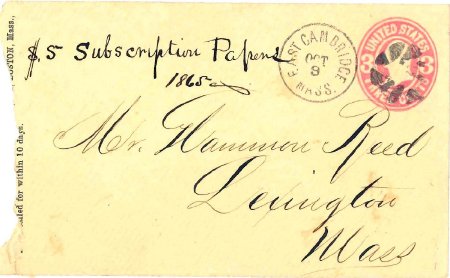 BOSTON, Mass.,
$5 Subscription Papers
1865
EAST CAMBRIDGE
OCT
9
MASS.
UNITED STATES
3
3
Mr. Hammon Reed
Lexington
Mass
for within 10 days.